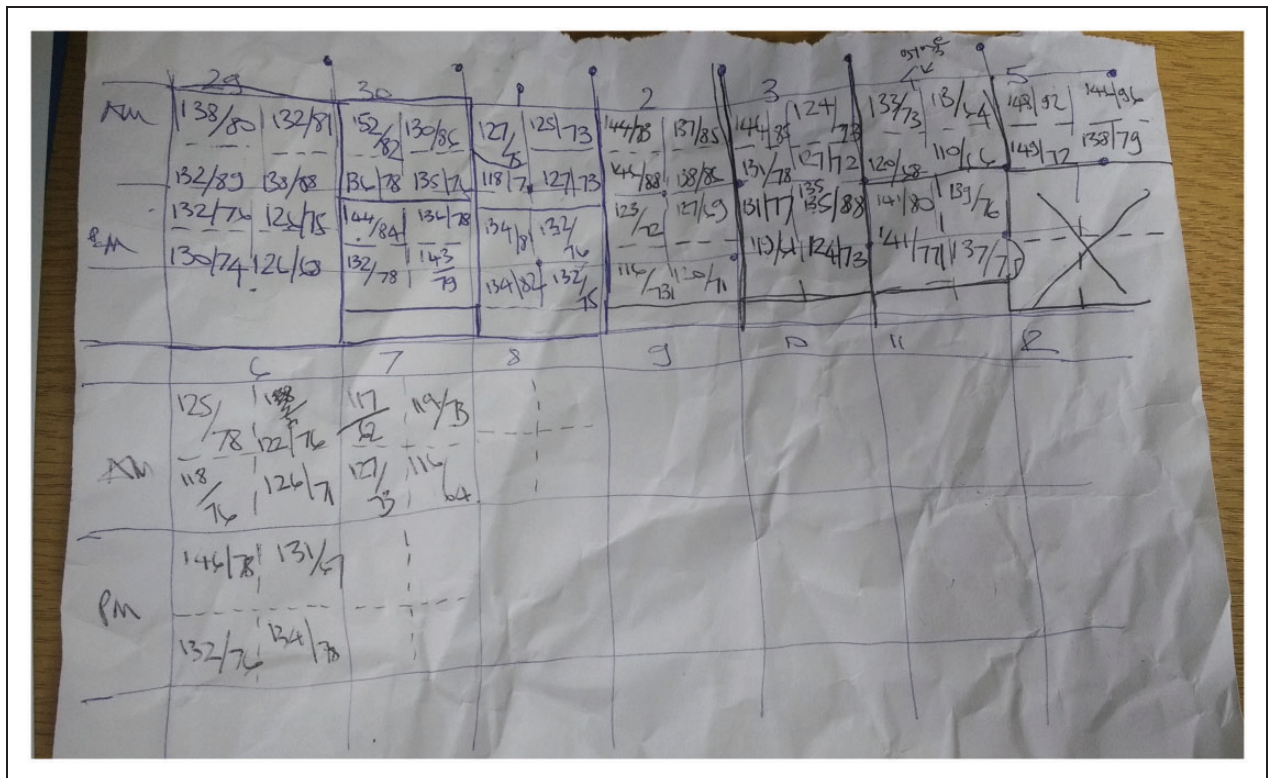 29 30 1 2 3 5
AM 138/80 132/81 152/82 130/86 127/75 125/73 144/78 137/85 144/85 124/73 133/73 131/64 148/92 144/96
132/89 138/88 136/78 135/76 118/7 127/73 145/88 138/86 131/78 127/72 120/68 110/66 149/72 138/79
PM 132/76 126/75 144/84 136/78 134/81 132/76 123/72 127/69 131/77 135 135/88 141/80 139/76
130/74 126/68 132/78 143/79 134/82 132/75 116/73 120/71 124/73 141/77 137/75
6 7 8 9 10 11 12
AM 125/78 122/76 117/62 119/73
118/76 126/71 127/73 116/64
PM 146/78 131/67
132/76 134/78